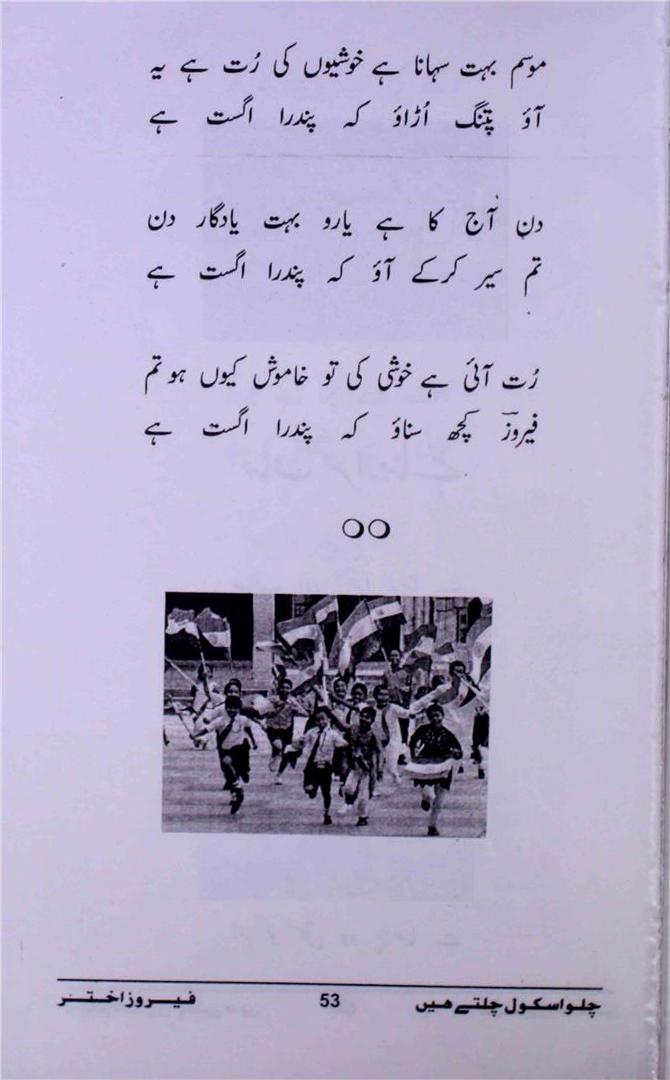 موسم بہت سہانا ہے خوشیوں کی رُت ہے یہ
آؤ پتنگ اُڑاؤ کہ پندرا اگست ہے
دن آج کا ہے یارو بہت یادگار دن
تم سیر کرکے آؤ کہ پندرا اگست ہے
رُت آئی ہے خوشی کی تو خاموش کیوں ہو تم
فیروزؔ کچھ سناؤ کہ پندرا اگست ہے
چلو اسکول چلتے ہیں 53 فیروز اختر